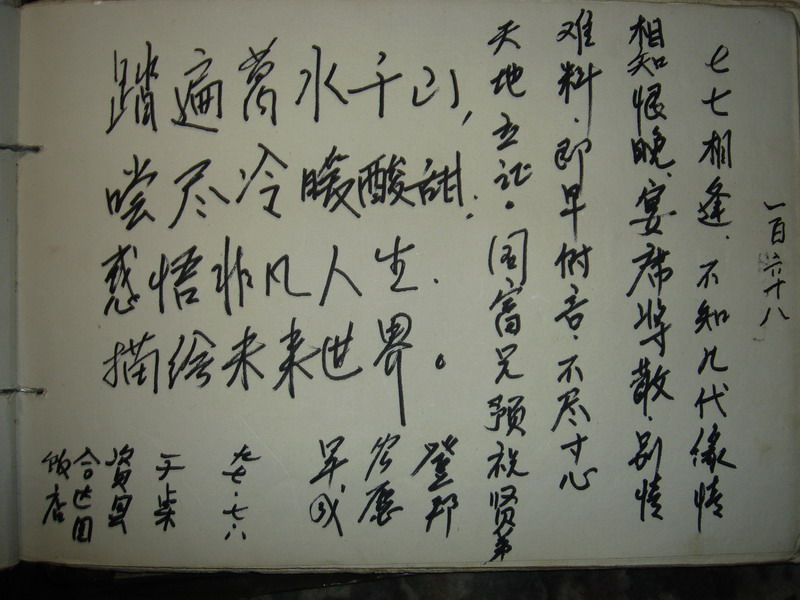 一百六十八
七七相逢、不知几代缘情
相知恨晚、宴席将散、别情
难料、即早付言、不尽寸心
天地立证。阁富兄预祝贤弟
踏遍萬水千山，
尝尽冷暖酸甜，
感悟非凡人生．
描绘未来世界。
登邦
宏愿
早成
九七·七八
于柴
合达园
饭店